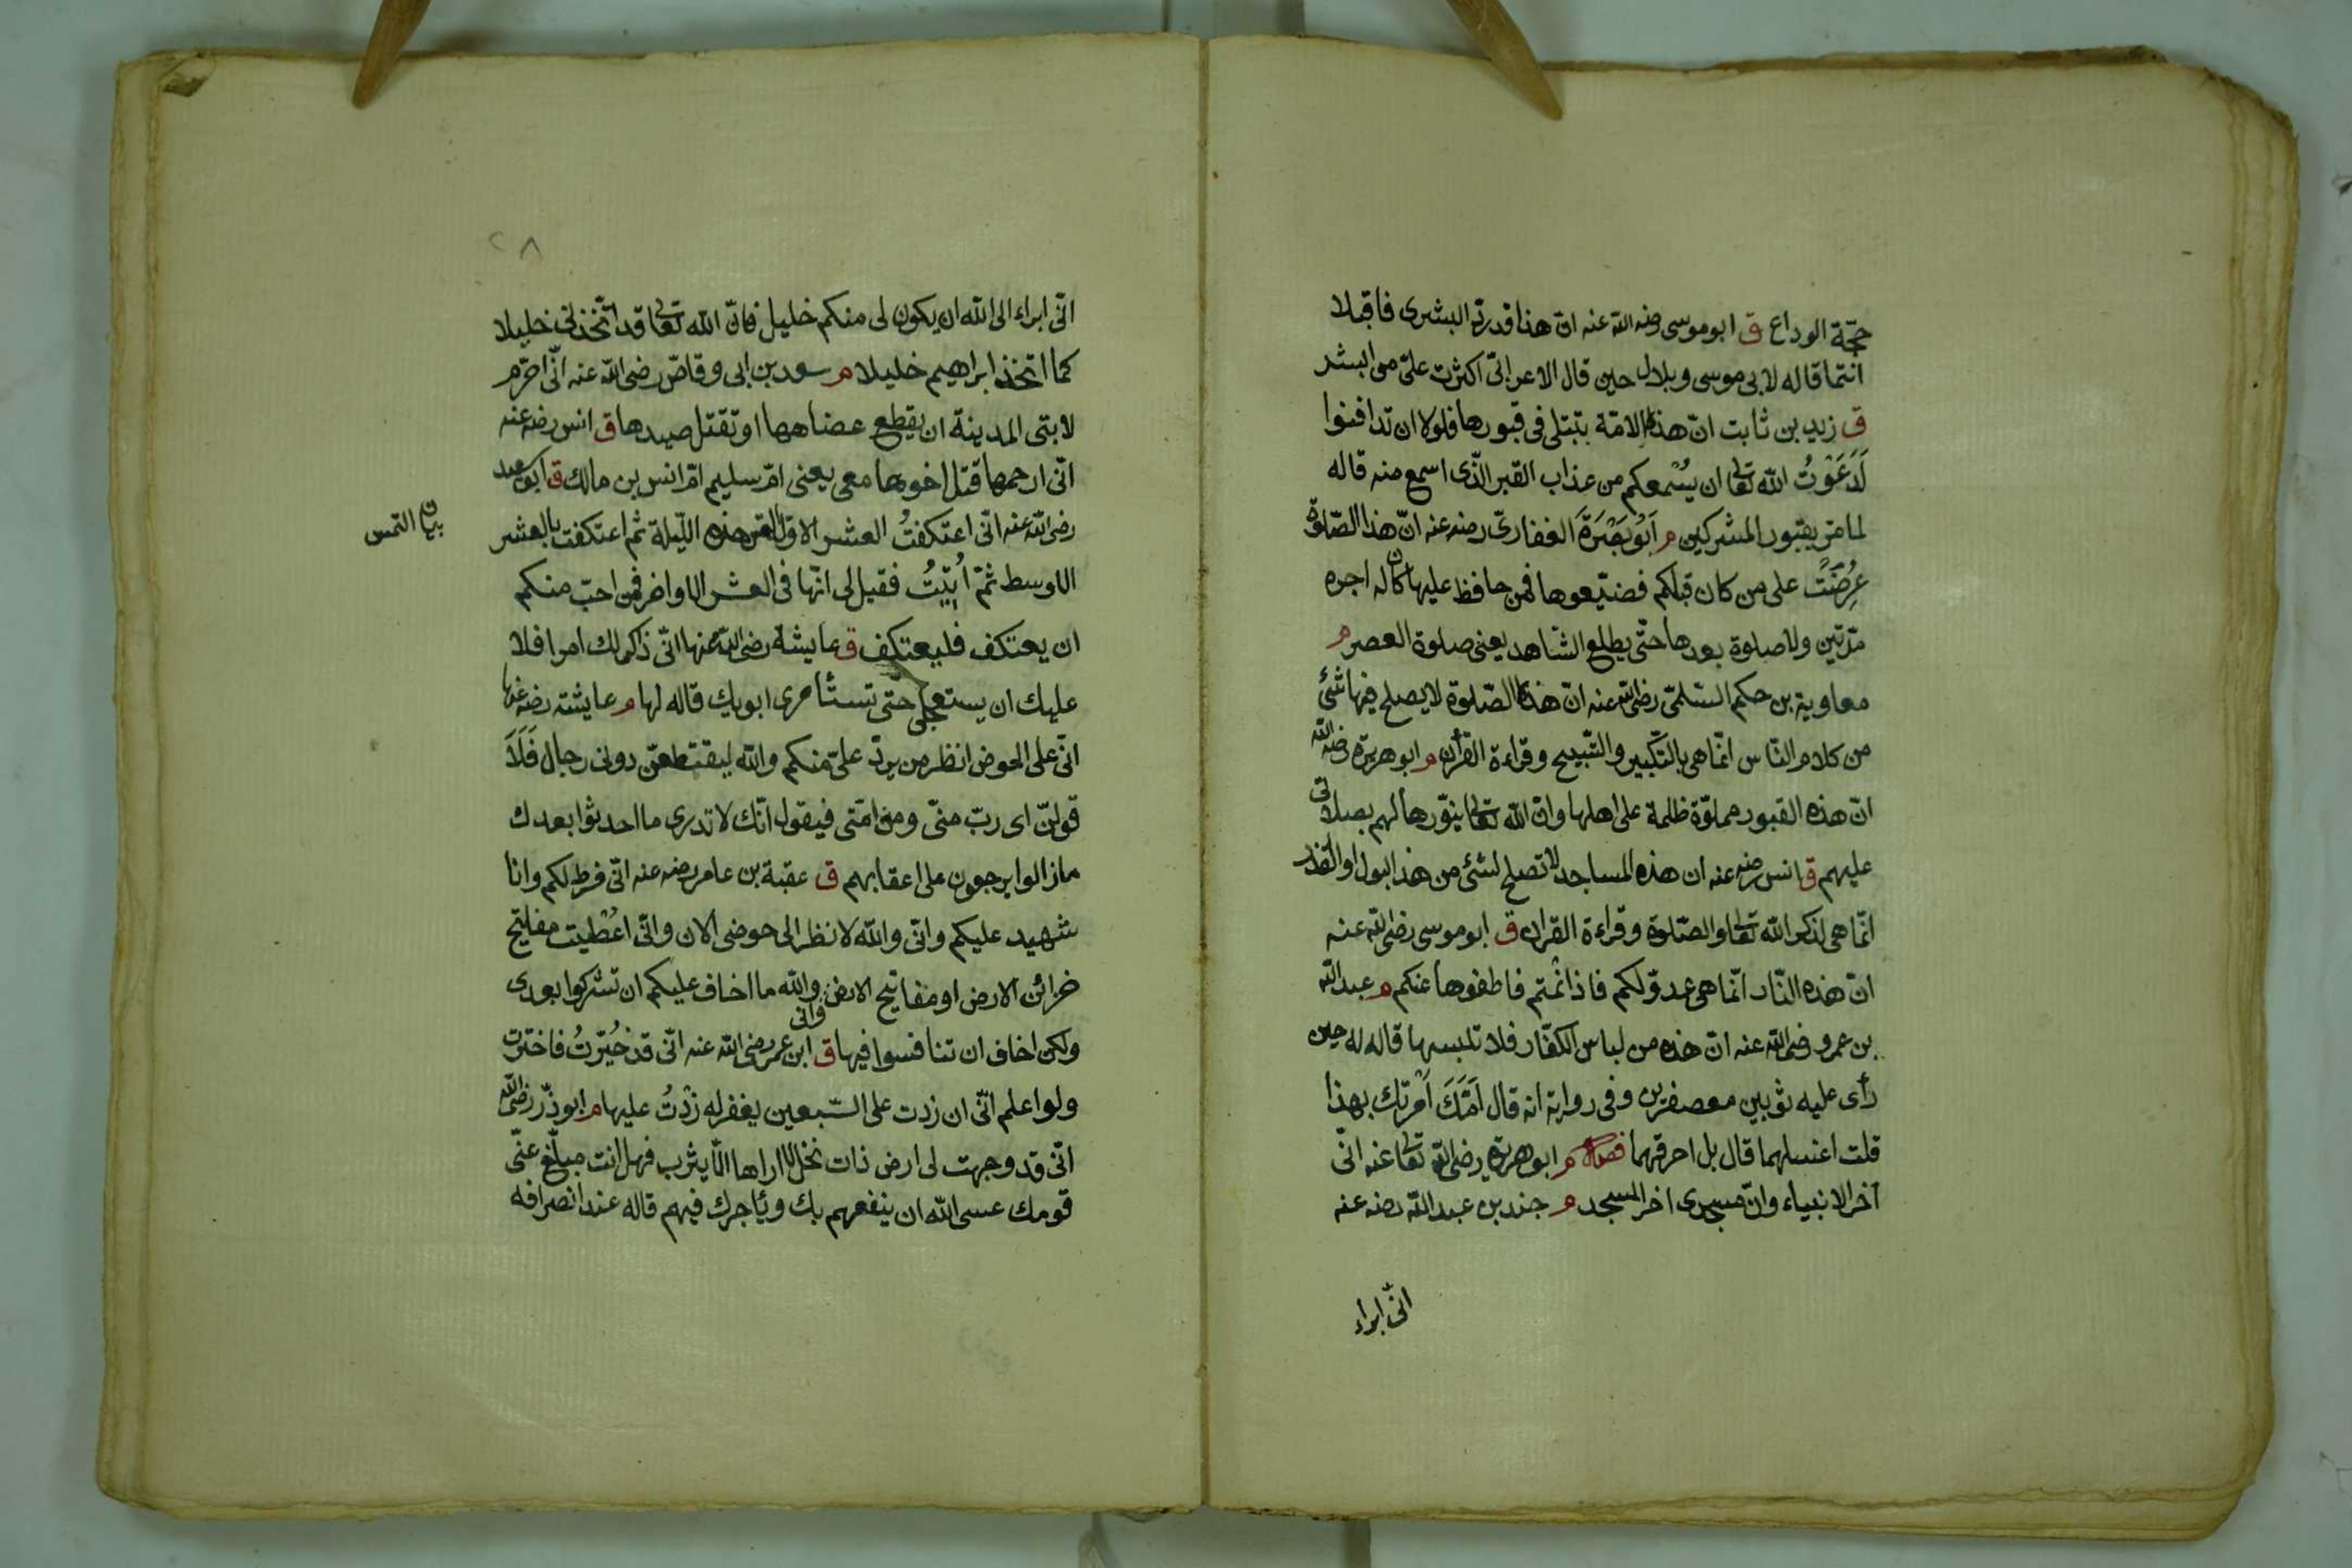 حجّة الوداع ق ابو موسى رضه الله عنه انّ هذا قد ردّ البشرى فاقبلا
انتما قاله لابى موسى وبلال حين قال الاعرابىّ اكثرت علىّ من البشر
ق زيد بن ثابت انّ هذه الامّة تبتلى فى قبورها فلولا ان تدافنوا
لَدَعَوْتُ الله تعا ان يُسْمعكم من عذاب القبر الّذى اسمع منه قاله
لما مرّ بقبور المشركين م اَبُو بَصْرَةَ الغفارىّ رضه عنه انّ هذا الصّلوة
عُرِضَتْ على من كان قبلكم فضيّعوها فمن حافظ عليها كان له اجره
مرّتين ولا صلوة بعدها حتّى يطلع الشّاهد يعنى صلوة العصر م
معاوية بن حكم السّلمّى رضى الله عنه انّ هذه الصّلوة لا يصلح فيها شئ
من كلام النّاس انّما هى بالتّكبير والتّسبيح وقراءة القرأن م ابو هريرة رضه الله
انّ هذه القبور مملوّة ظلمة على اهلها وانّ الله تعا ينوّرها لهم بصلاتى
عليهم ق انس رضه عنه ان هذه المساجد لا تصلح لشئ من هذا البول او القذر
انّما هى لذكر الله تعا والصّلوة وقراءة القران ق ابو موسى رضى الله عنه
انّ هذه النّار انّما هى عدوّ لكم فاذا نمْتم فاطفوها عنكم م عبد الله
بن عمرو رضى الله عنه انّ هذه من لباس الكفّار فلا تلبسها قاله له حين
رأى عليه ثوبين معصفرين وفى رواية انه قال اَمُّكَ اَمَرتك بهذا
قلت اغسلهما قال بل احرقهما فصل م ابو هريرة رضى الله تعا عنه انّى
آخر الانبياء وانّ مسجدى اخر المسجد م جندب بن عبد الله رضه عنه
انّى ابراء
٢٨
انّى ابراء الى الله ان يكون لى منكم خليل فانّ الله تعا قد اتّخذنى خليلا
كما اتخذ ابراهيم خليلا م سعد بن ابى وقاصّ رضى الله عنه انّى احرّم
لابتى المدينة ان يقطع عضاهها او تقتل صيدها ق انس رضه عنه
انّى ارحمها قتل اخوها معى يعنى امّ سليم امّ انس بن مالك ق ابو سعيد
رضى الله عنه انّى اعتكفتُ العشر الاوّل التمس هذه اللّيلة ثم اعتكفت بالعشر
الاوسط ثمّ اُتِيْتُ فقيل لى انّها فى العشر الاواخر فمن احبّ منكم
ان يعتكف فليعتكف ق عايشة رضى الله عنها انّى ذاكر لك امرا فلا
عليك ان يستعجلى حتّى تستأمرى ابويك قاله لها م عايشته رضه عنها
انّى على الحوض انظر من يردّ علىّ منكم والله ليقتطعنّ دونى رجال فَلَاَ
قولنّ اى ربّ منّى ومن امّتى فيقول انّك لا تدرى ما احدثوا بعدك
مازالوا يرجعون على اعقابهم ق عقبة بن عامر رضه عنه انّى فرط لكم وانا
شهيد عليكم وانّى والله لانظر الى حوضى الان وانّى اعْطيت مفاتيح
خزائن الارض او مفاتيح الارض وانى والله ما اخاف عليكم ان تشركوا بعدى
ولكن اخاف ان تنافسوا فيها ق ابن عمر رضى الله عنه انّى قد خُيّرتُ فاخترت
ولو اعلم انّى ان زدت على السّبعين يغفر له زِدْتُ عليها م ابو ذرّ رضى الله
انّى قد وجهت لى ارض ذات نخل لا اراها الّا يثرب فهل انت مبلّغ عنّى
قومك عسى الله ان ينفعهم بك ويأجرك فيهم قاله عند انصرافه
بيان التمس